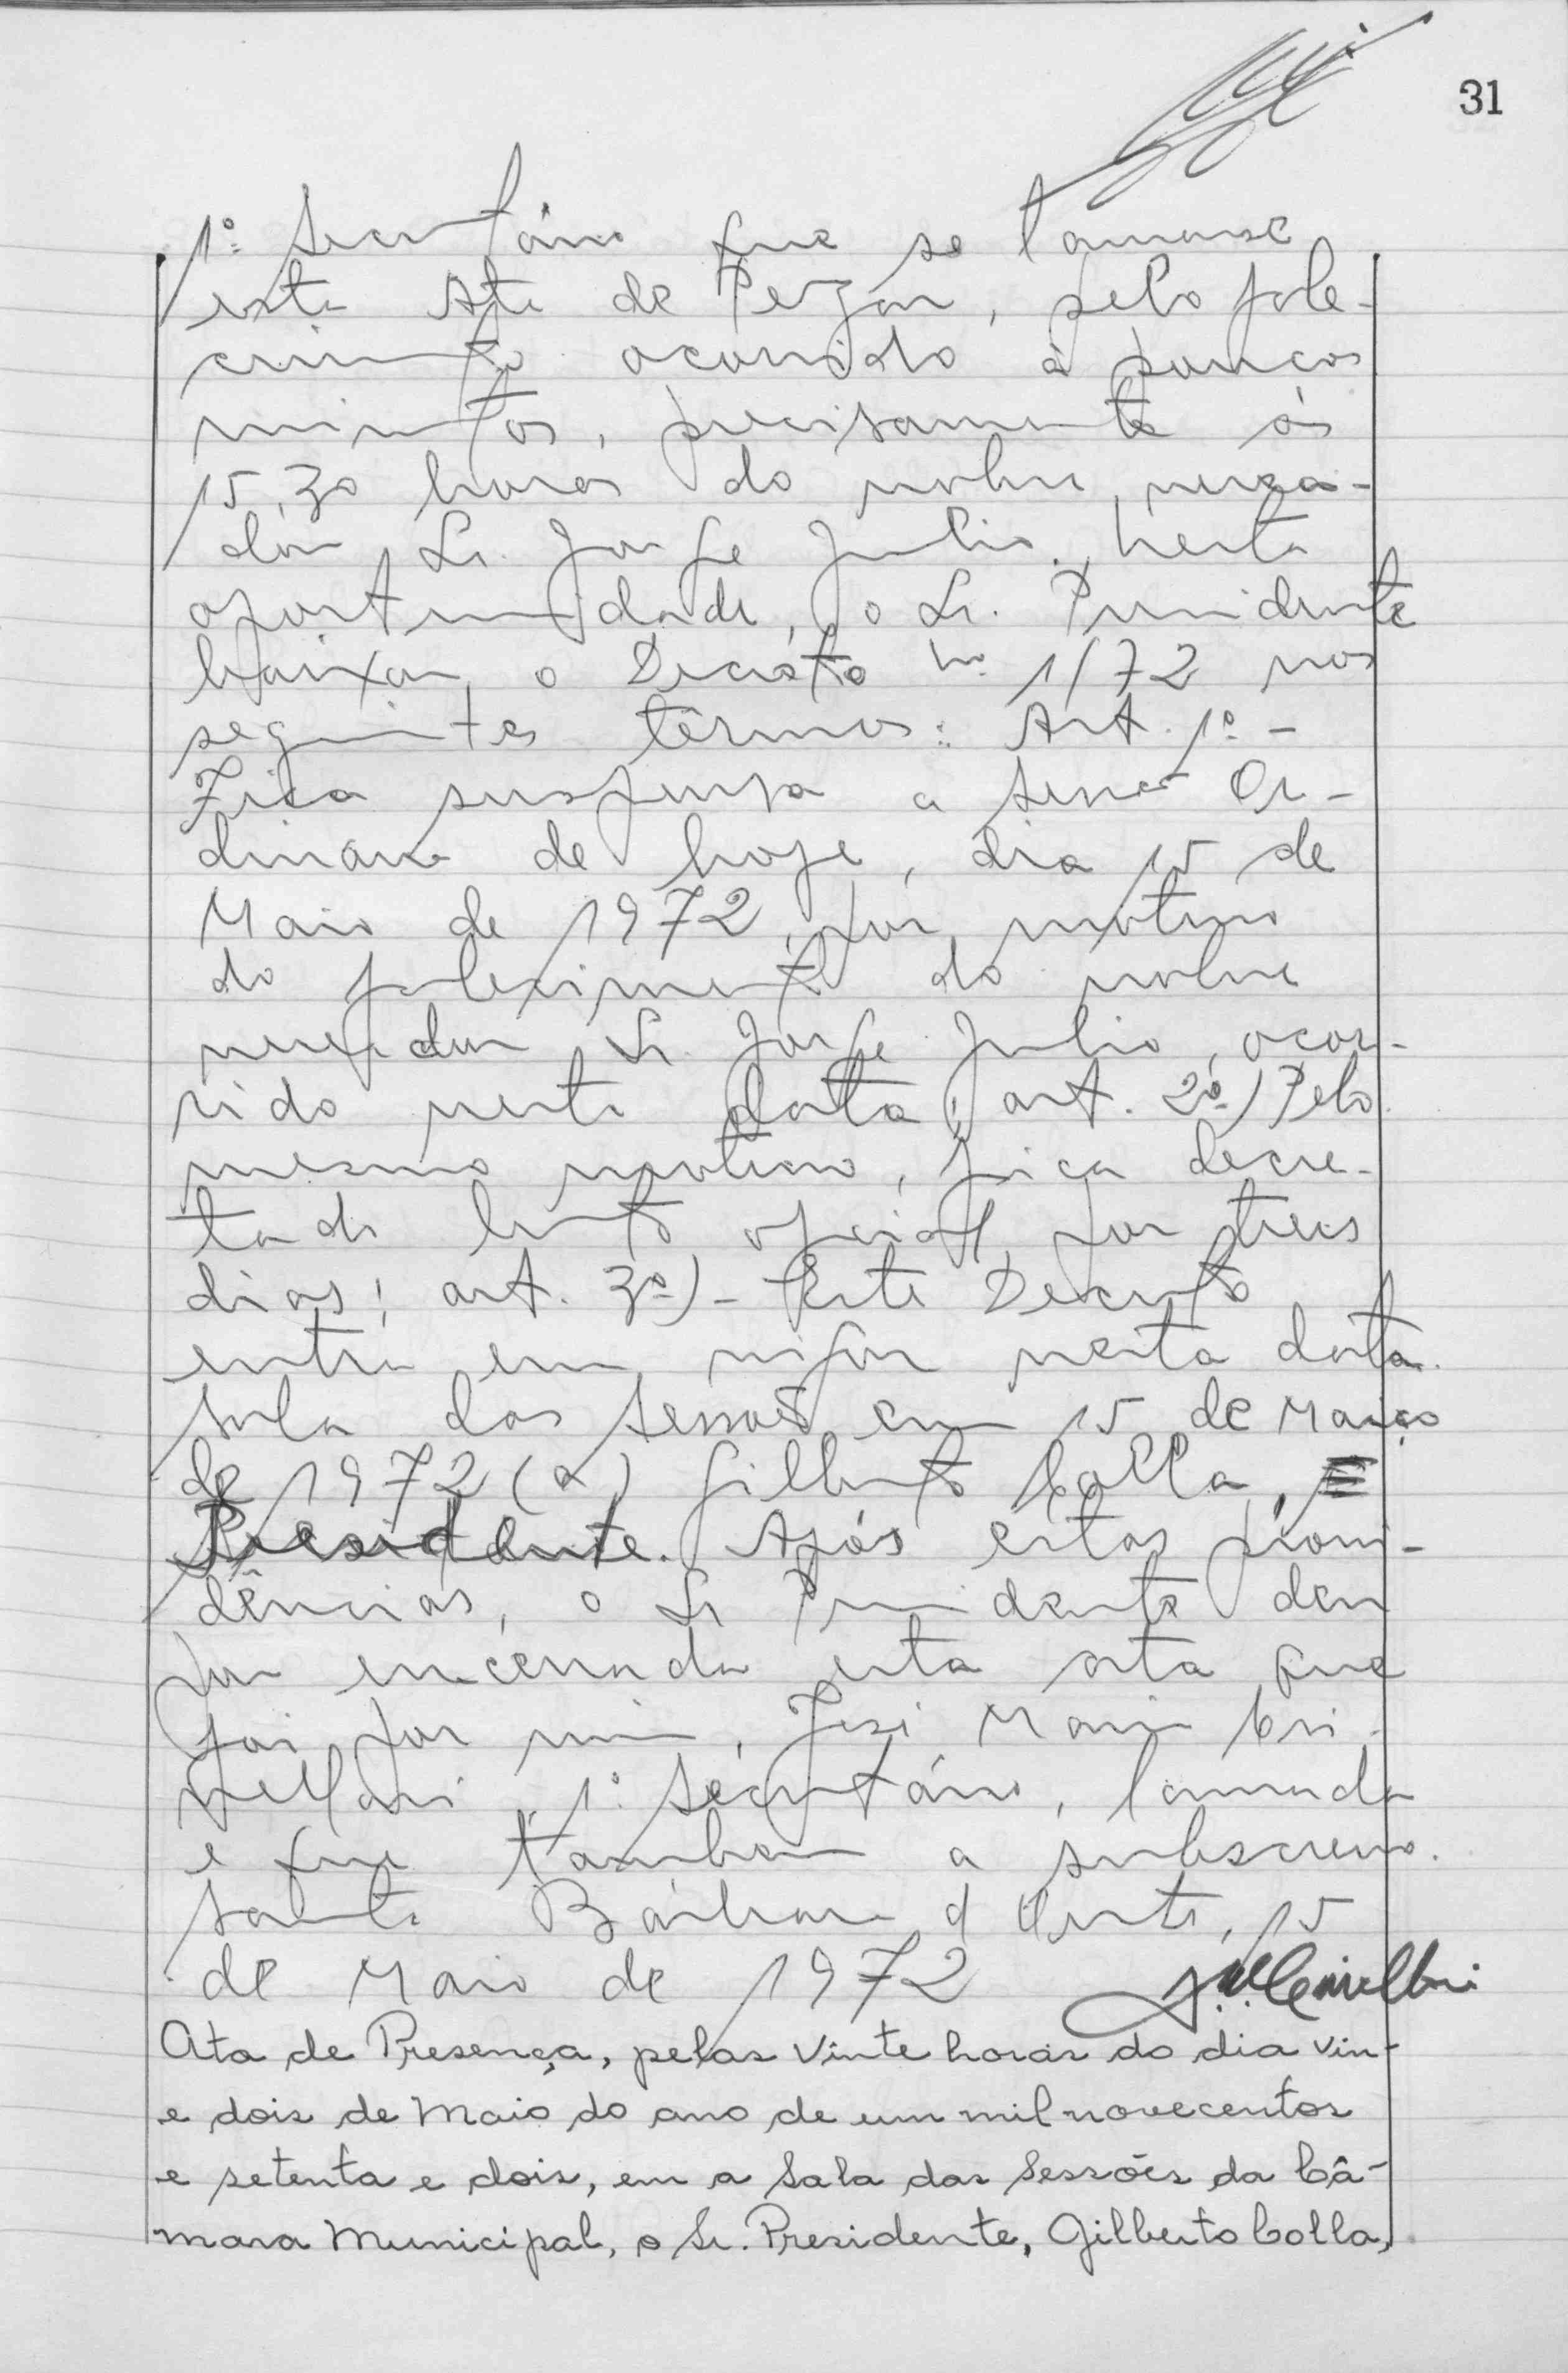 31
1º Secretário que se lavrasse
esta Ata de Pezar, pelo fale-
cimento ocorrido à poucos
minutos, precisamente ás
15,30 horas do nobre verea-
dor Sr. Jorge Julio. Nesta
oportunidade, o Sr. Presidente
baixou o Decreto nº 1/72 nos
seguintes têrmos: Art. 1º -
Fica suspensa a Sessão Or-
dinária de hoje, dia 15 de
Maio de 1972, por motivo
do falecimento do nobre
vereador Sr. Jorge Julio, ocor-
rido nesta data; art. 2º) Pelo
mesmo motivo, fica decre-
tado luto oficial por tres
dias; art. 3º) - Este Decreto
entra em vigor nesta data.
Sala das Sessões em 15 de Maio
de 1972 (a) Gilberto Colla,
Presidente. Após estas provi-
dências, o Sr Presidente deu
por encerrada esta ata que
foi por mim, José Maria
1º Secretário, lavrada
e que tambem a subscrevo.
Santa Bárbara d'Oeste, 15
de Maio de 1972
Ata de Presença, pelas vinte horas do dia vin-
e dois de Maio do ano de um mil novecentos
e setenta e dois, em a Sala das Sessões da Câ-
mara Municipal, o Sr. Presidente, Gilberto Colla,